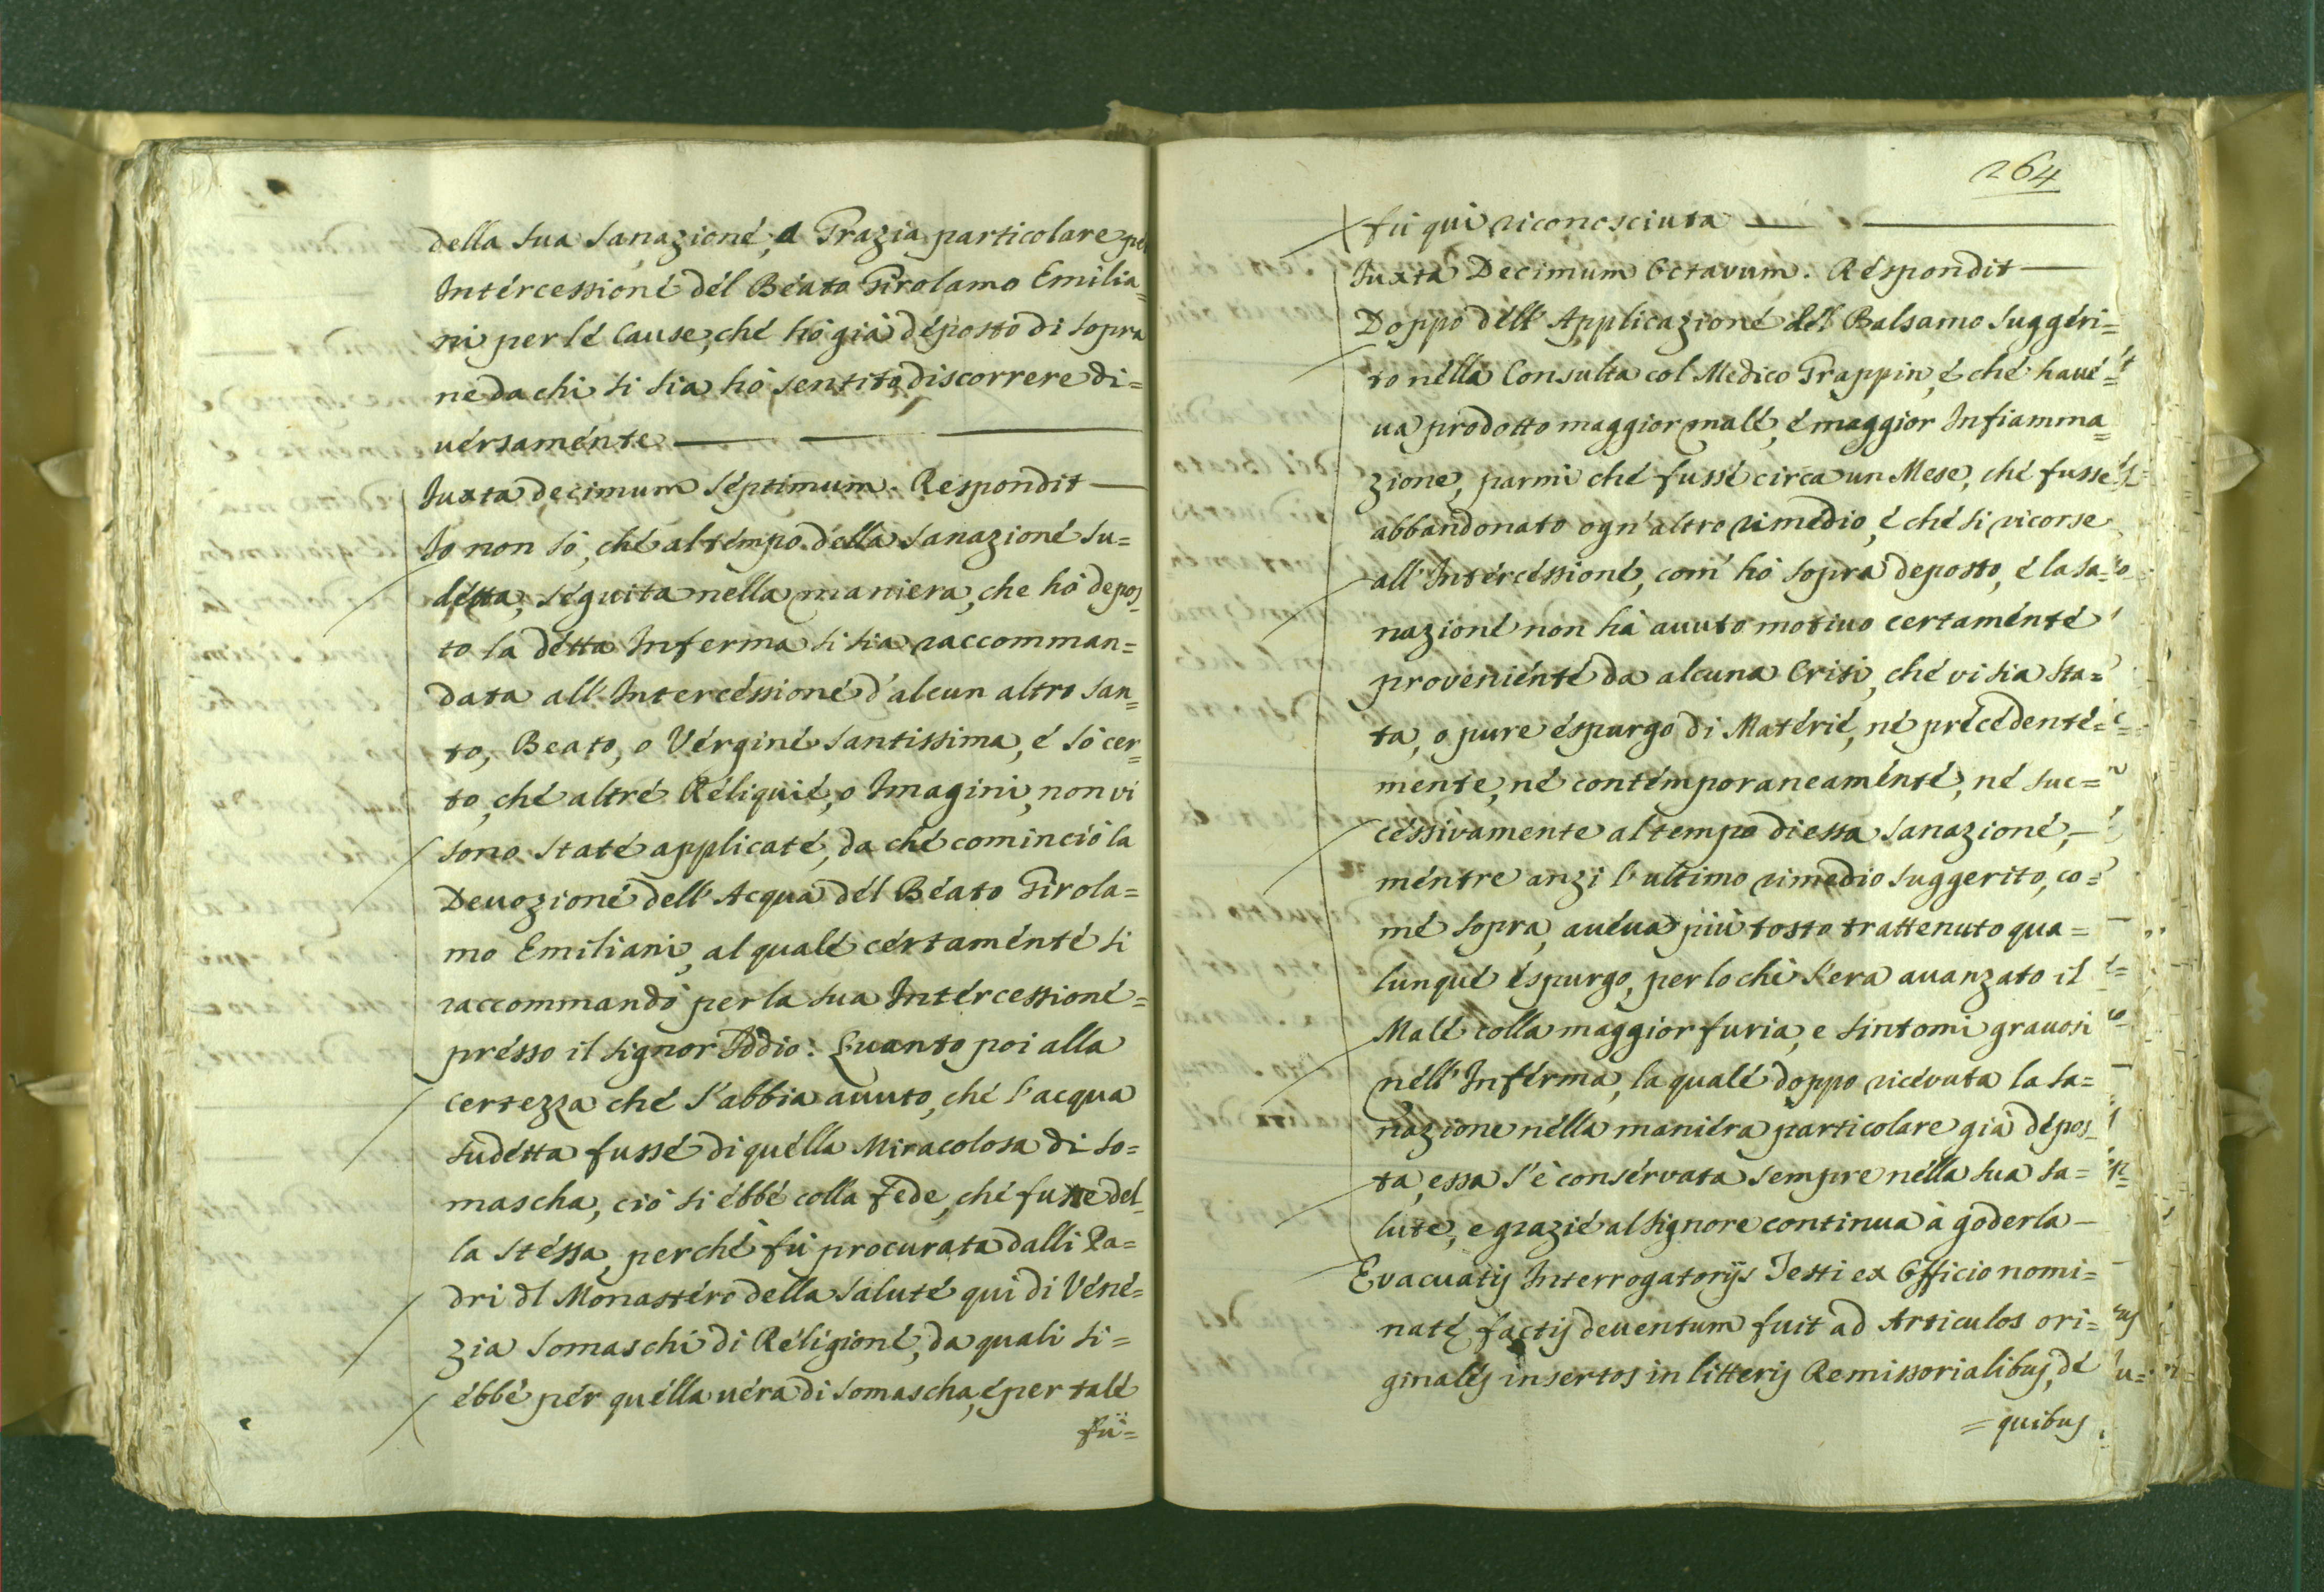 della sua sanazioné, a Grazia particolare per
Intércessioné dél Béato Girolamo Emilia=
ni per lé Cause, ché hò già déposto di sopra
ne da chi si sia hò sentito discorrere di=
uérsaménte
Iuxta decimum séptimum. Respondit
Io non sò, ché al témpo délla sanazioné su=
détta, séguita nella maniera, che hò depos=
to la détta Inferma si sia raccomman=
data all'Intercéssioné d'alcun altro San=
to, Beato, o Vérginé Santissima, é sò cer=
to, ché altré Réliquié, o Imagini, non vi
sono staté applicaté, da ché cominciò la
Deuozioné dell'Acqua dél Béato Girola=
mo Emiliani, al qualé cértaménté si
raccommandò per la sua Intércessioné=
présso il Signor Iddio: Quanto poi alla
certezza ché s'abbia auuto, ché l'acqua
sudétta fussé di quélla Miracolosa di So=
mascha, ciò si ébbé colla fede, ché fusse del=
la stéssa, perché fù procurata dalli Pa=
dri dl Monastéro della Saluté qui di Véné=
zia Somaschi di Réligioné, da quali si=
ébbé pér quélla uéra di Somascha, é per talé
fù=
264
fù qui riconosciuta
Iuxta Decimum Octavum. Réspondit
Doppo déll'Applicazioné dél Balsamo suggéri=
to nélla Consulta col Medico Grappin, é ché haué=
ua prodotto maggior malé, é maggior Infiamma=
zione, parmi ché fussé circa un Mese, ché fusse
abbandonato ogn'altro rimedio, é ché si ricorse
all'Intércéssioné, com'hò sopra deposto, é la sa=
nazioné non hà auuto motiuo certaménté
proveniénté da alcuna Crisi, ché vi sia sta=
ta, o pure éspurgo di Matérié, né précédenté=
mente, né contémporaneaménté, né suc=
céssivamente al tempo di essa sanazioné,
méntre anzi l'ultimo rimedio suggerito, co=
mé sopra, auéua più tosto trattenuto qua=
lunqué éspurgo, per lo chè s'era auanzato il
Malé colla maggior furia, e sintomi grauosi
néll'Inférma, la qualé doppo ricévuta la sa=
nazione nélla maniéra particolare già dépos=
ta, essa s'è consérvata sempre nélla sua sa=
lute, e grazié al Signore continua à goderla
Evacuatis Interrogatorijs Testi ex Officio nomi=
naté, factis deuentum fuit ad Articulos ori=
ginalés insertos in litteris Remissorialibus, dé
=quibus